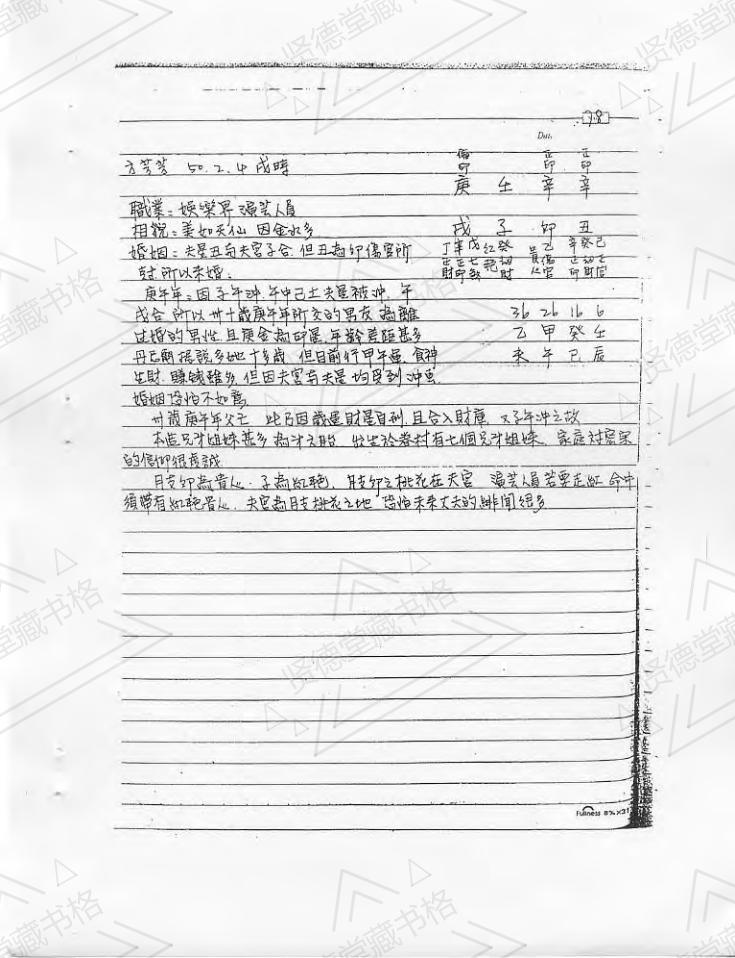 78
Date.
方芳芳 50.2.4 戌時
偏印 正印 正印
庚 壬 辛 辛
職業：娛樂界演芸人員
戌 子 卯 丑
相貌：美如天仙 因金水多
婚姻：夫星丑与夫宮子合 但丑為卯傷官所
丁辛戊 紅艷 癸 貴人 乙 辛癸己
正財 正印 七殺 劫財 傷官 正印 劫財 正官
尅 所以未婚。
庚午年：因子午冲 午中己土夫星被冲 午
戌合 所以卅十歲庚午年所交的男友 為離
36 26 16 6
过婚的男性 且庚金為印星 年齡差距甚多
乙 甲 癸 壬
丹己朝 据說多她十多歲 但目前行甲午運 食神
未 午 巳 辰
生財 賺錢雖多 但因夫宮与夫星均受到冲尅
婚姻恐怕不如意
卅歲庚午年父亡 此乃因歲運財星自刑 且合入財庫 又子午冲之故
本造兄弟姐妹甚多 出生於眷村有七個兄弟姐妹 家庭对宗
的信仰很虔誠
月支卯為貴人 子為紅艷 月支卯之桃花在夫宮 演芸人員若要走紅 命中
須帶有紅艷貴人 夫宮為月支桃花之地 恐怕未來丈夫的緋聞很多
Fullness
贤德堂藏书格
贤德堂藏书格
贤德堂藏书格
贤德堂藏书格